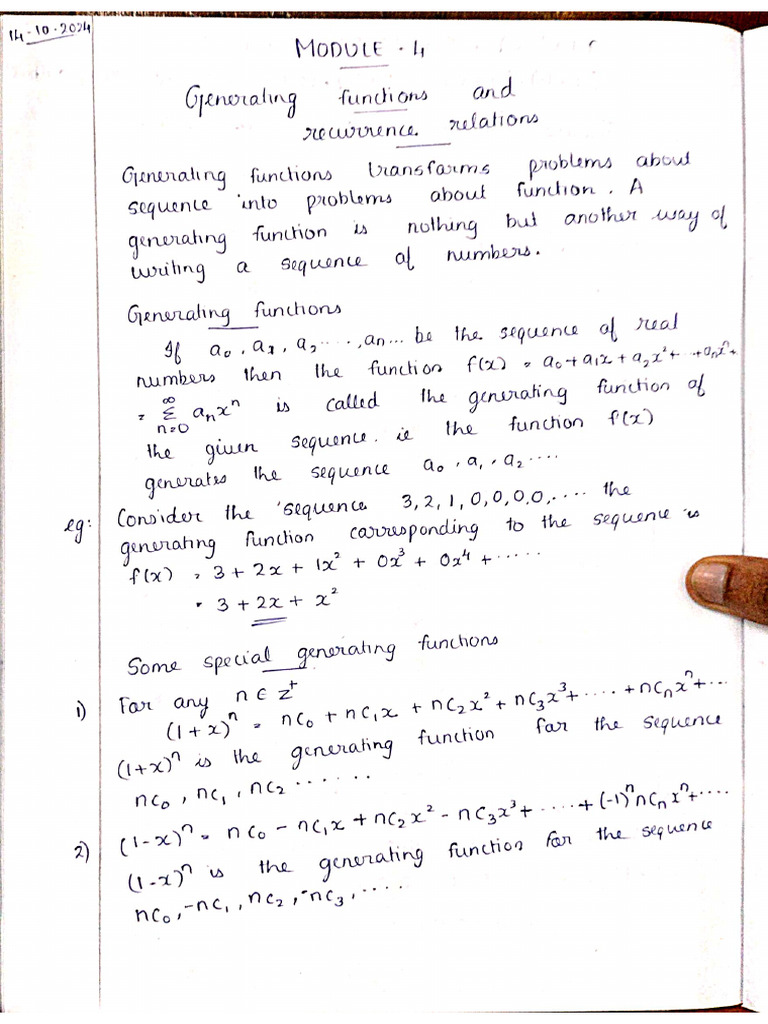 14-10-2024
MODULE - 4
Generating functions and
recurrence relations
Generating functions transforms problems about
sequence into problems about function. A
generating function is nothing but another way of
writing a sequence of numbers.
Generating functions
If a₀, a₁, a₂ ....., an... be the sequence of real
numbers then the function f(x) = a₀ + a₁x + a₂x² + ..+aₙxⁿ+
= ∞Σn=0 aₙxⁿ is called the generating function of
the given sequence. ie the function f(x)
generates the sequence a₀, a₁, a₂ ....
eg: Consider the sequence 3, 2, 1, 0, 0, 0, 0, .... the
generating function corresponding to the sequence is
f(x) = 3 + 2x + 1x² + 0x³ + 0x⁴ + .....
= 3 + 2x + x²
Some special generating functions
1) For any n ∈ z⁺
(1+x)ⁿ = nC₀ + nC₁x + nC₂x² + nC₃x³ + .... + nCₙxⁿ + ...
(1+x)ⁿ is the generating function for the sequence
nC₀, nC₁, nC₂ .......
2) (1-x)ⁿ = nC₀ - nC₁x + nC₂x² - nC₃x³ + .... + (-1)ⁿnCₙxⁿ + ....
(1-x)ⁿ is the generating function for the sequence
nC₀, -nC₁, nC₂, -nC₃, ....